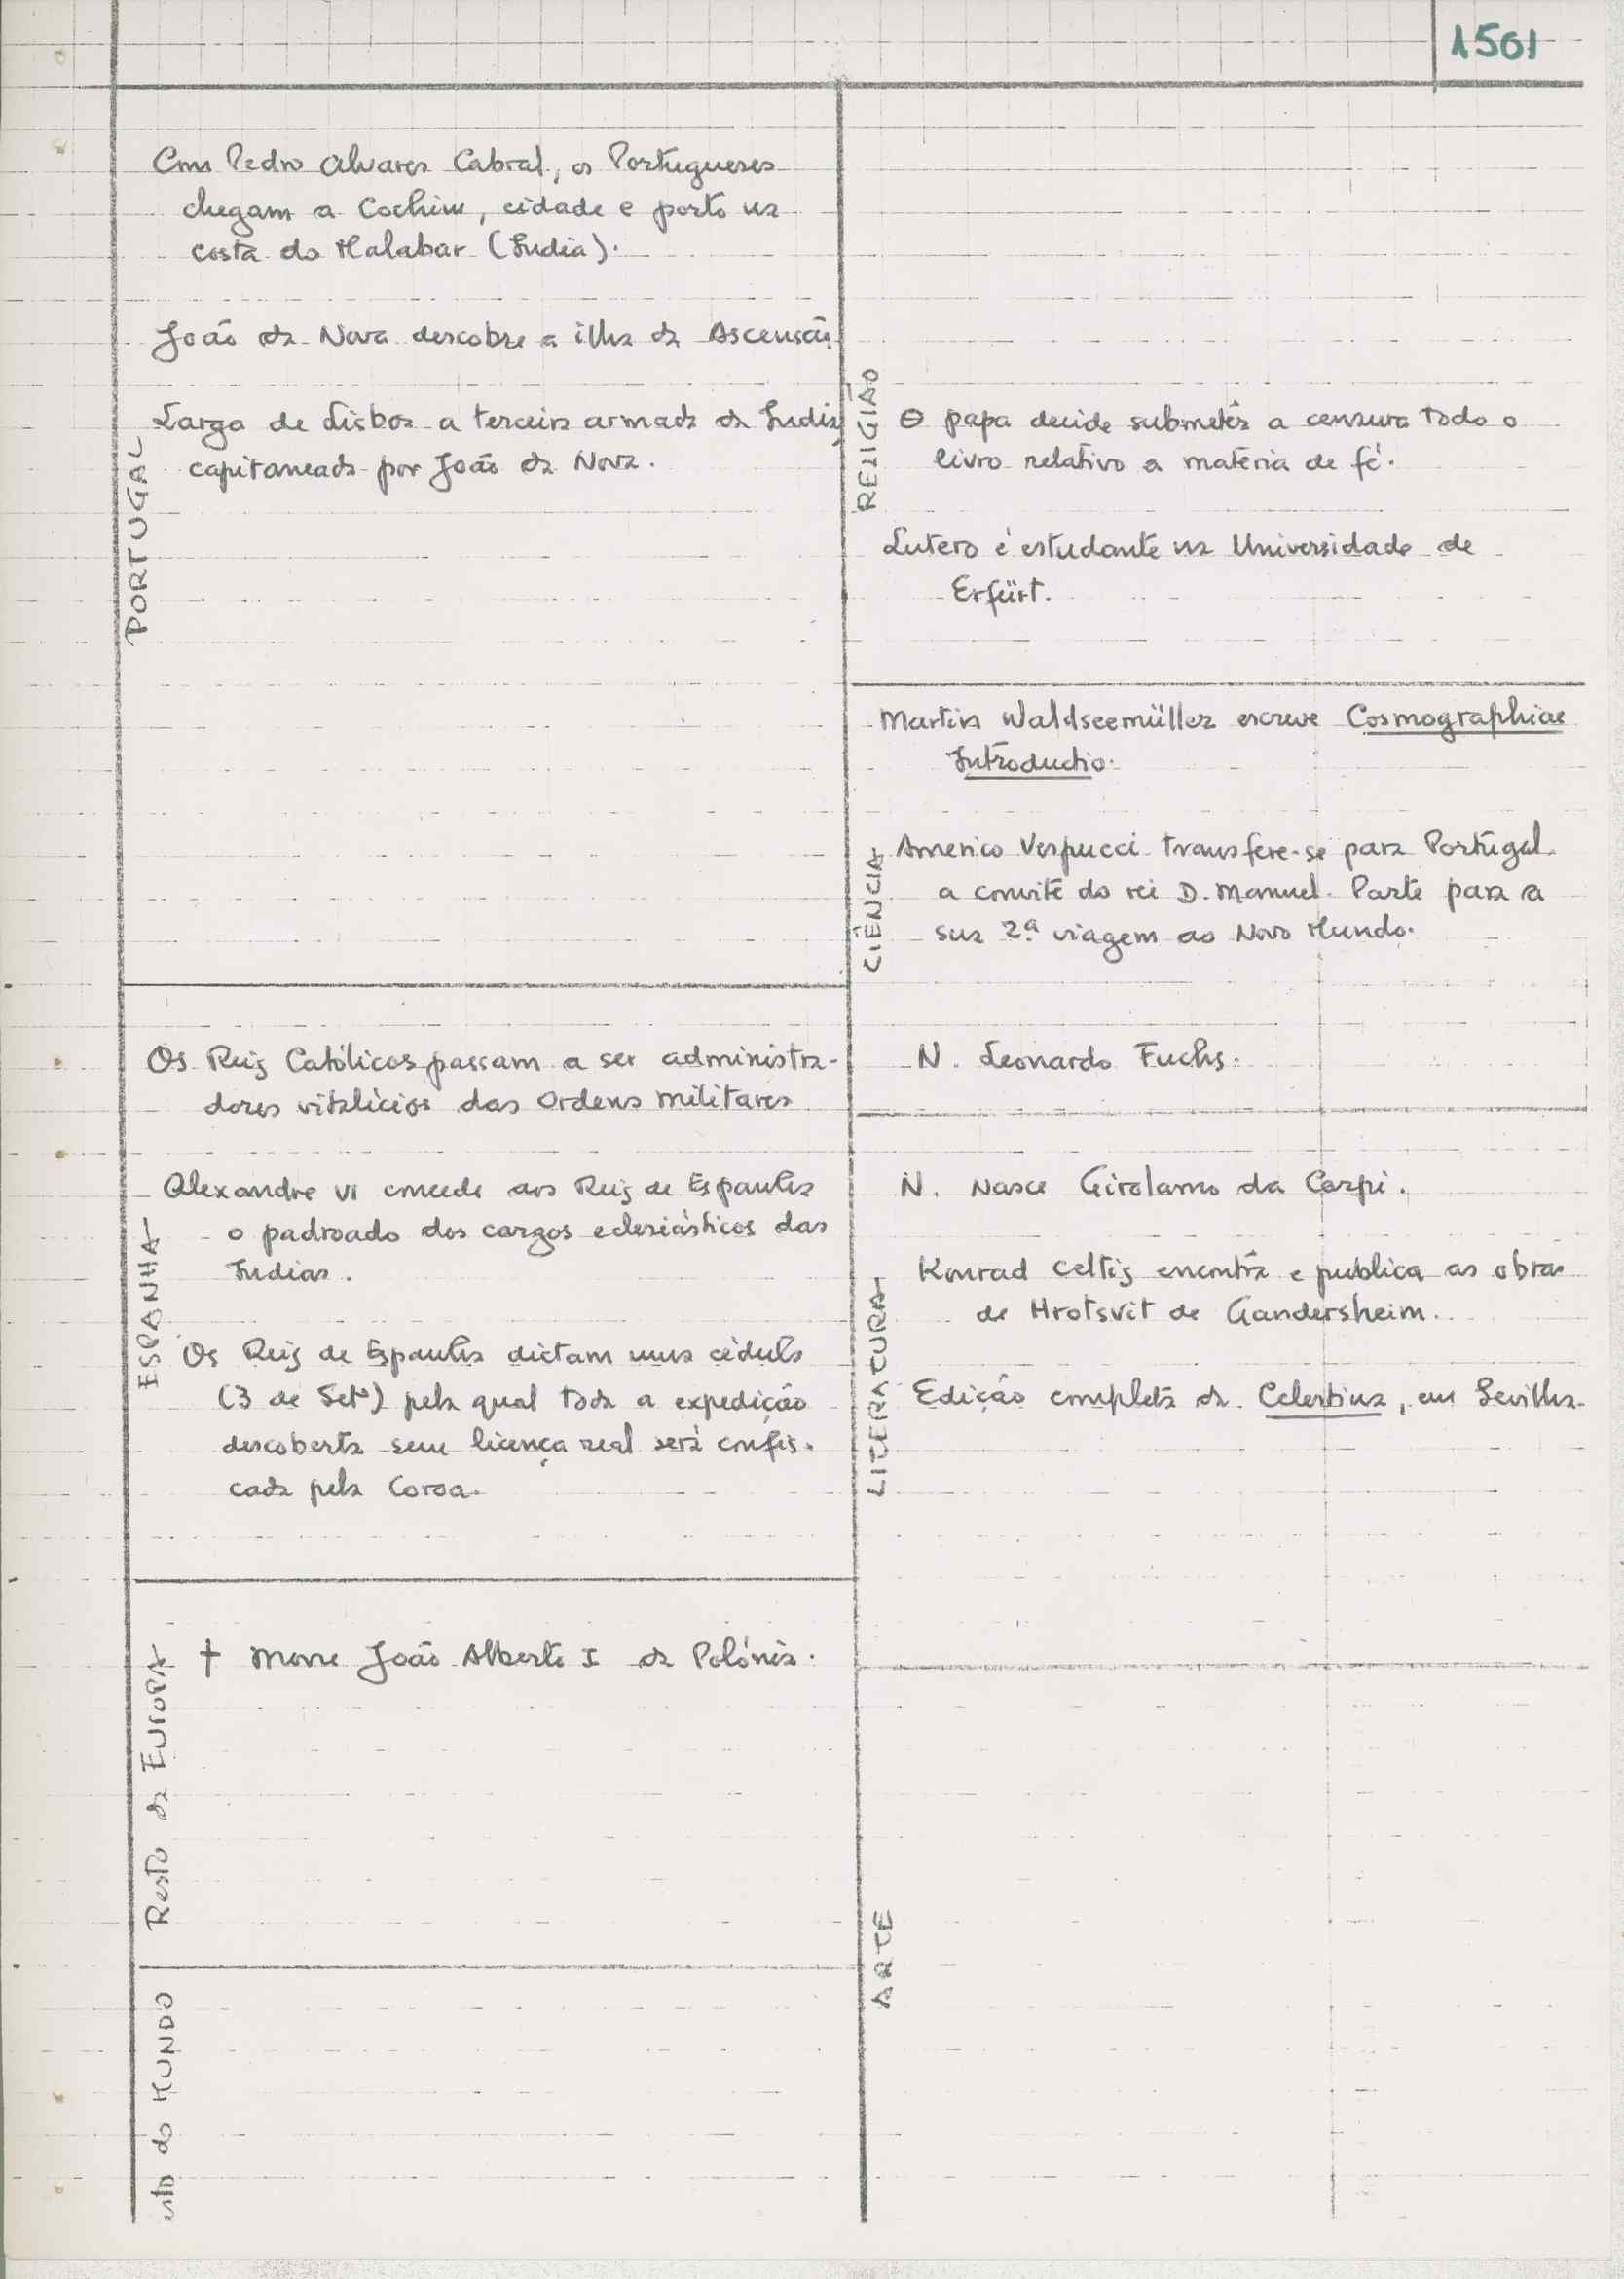 1501
PORTUGAL
Com Pedro Alvares Cabral, os Portugueses
chegam a Cochim, cidade e porto na
costa do Malabar (India).
João da Nova descobre a ilha da Ascensão
Larga de Lisboa a terceira armada da India,
capitaneada por João da Nova.
ESPANHA
Os Reis Católicos passam a ser administra-
dores vitalícios das Ordens militares
Alexandre VI concede aos Reis de Espanha
o padroado dos cargos eclesiásticos das
Indias.
Os Reis de Espanha dictam uma cédula
(3 de Setº) pela qual toda a expedição
descoberta sem licença real será confis-
cada pela Coroa.
Resto da Europa
† Morre João Alberto I da Polónia.
esto do MUNDO
RELIGIÃO
O papa decide submeter a censura todo o
livro relativo a matéria de fé.
Lutero é estudante na Universidade de
Erfürt.
CIÊNCIA
Martin Waldseemüller escreve Cosmographiae
Introductio.
Americo Vespucci transfere-se para Portugal
a convite do rei D. Manuel. Parte para a
sua 2ª viagem ao Novo Mundo.
N. Leonardo Fuchs.
LITERATURA
N. Nasce Girolamo da Carpi.
Konrad Celtis encontra e publica as obras
de Hrotsvit de Gandersheim.
Edição completa da Celestina, em Sevilha.
ARTE